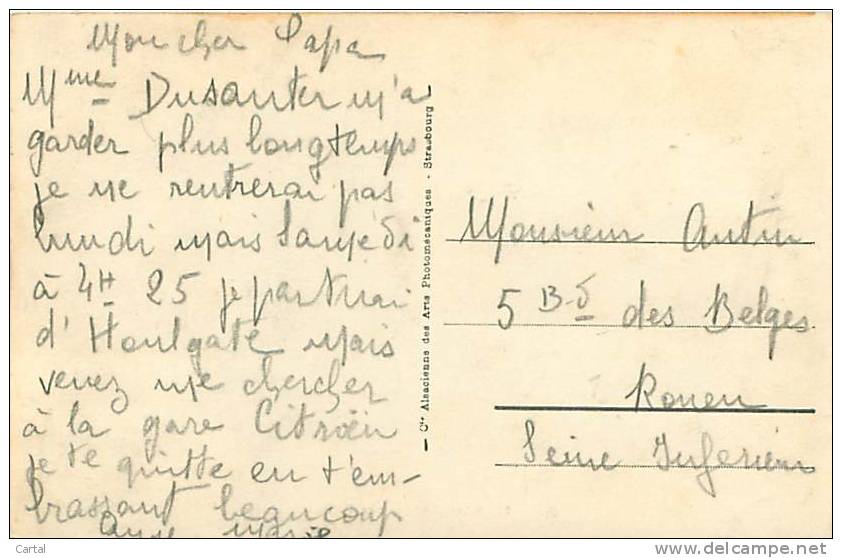 Mon cher Papa
Mme Dusauter m'a
garder plus longtemps
je ne rentrerai pas
lundi mais samedi
à 4H 25 je partirai
d'Houlgate mais
venez me chercher
à la gare Citroën
je te quitte en t'em-
brassant beaucoup
Anne Marie
— Cie Alsacienne des Arts Photomécaniques - Strasbourg —
Monsieur Autin
5 Bd des Belges
Rouen
Seine Inférieure
Cartal
delcampe.net